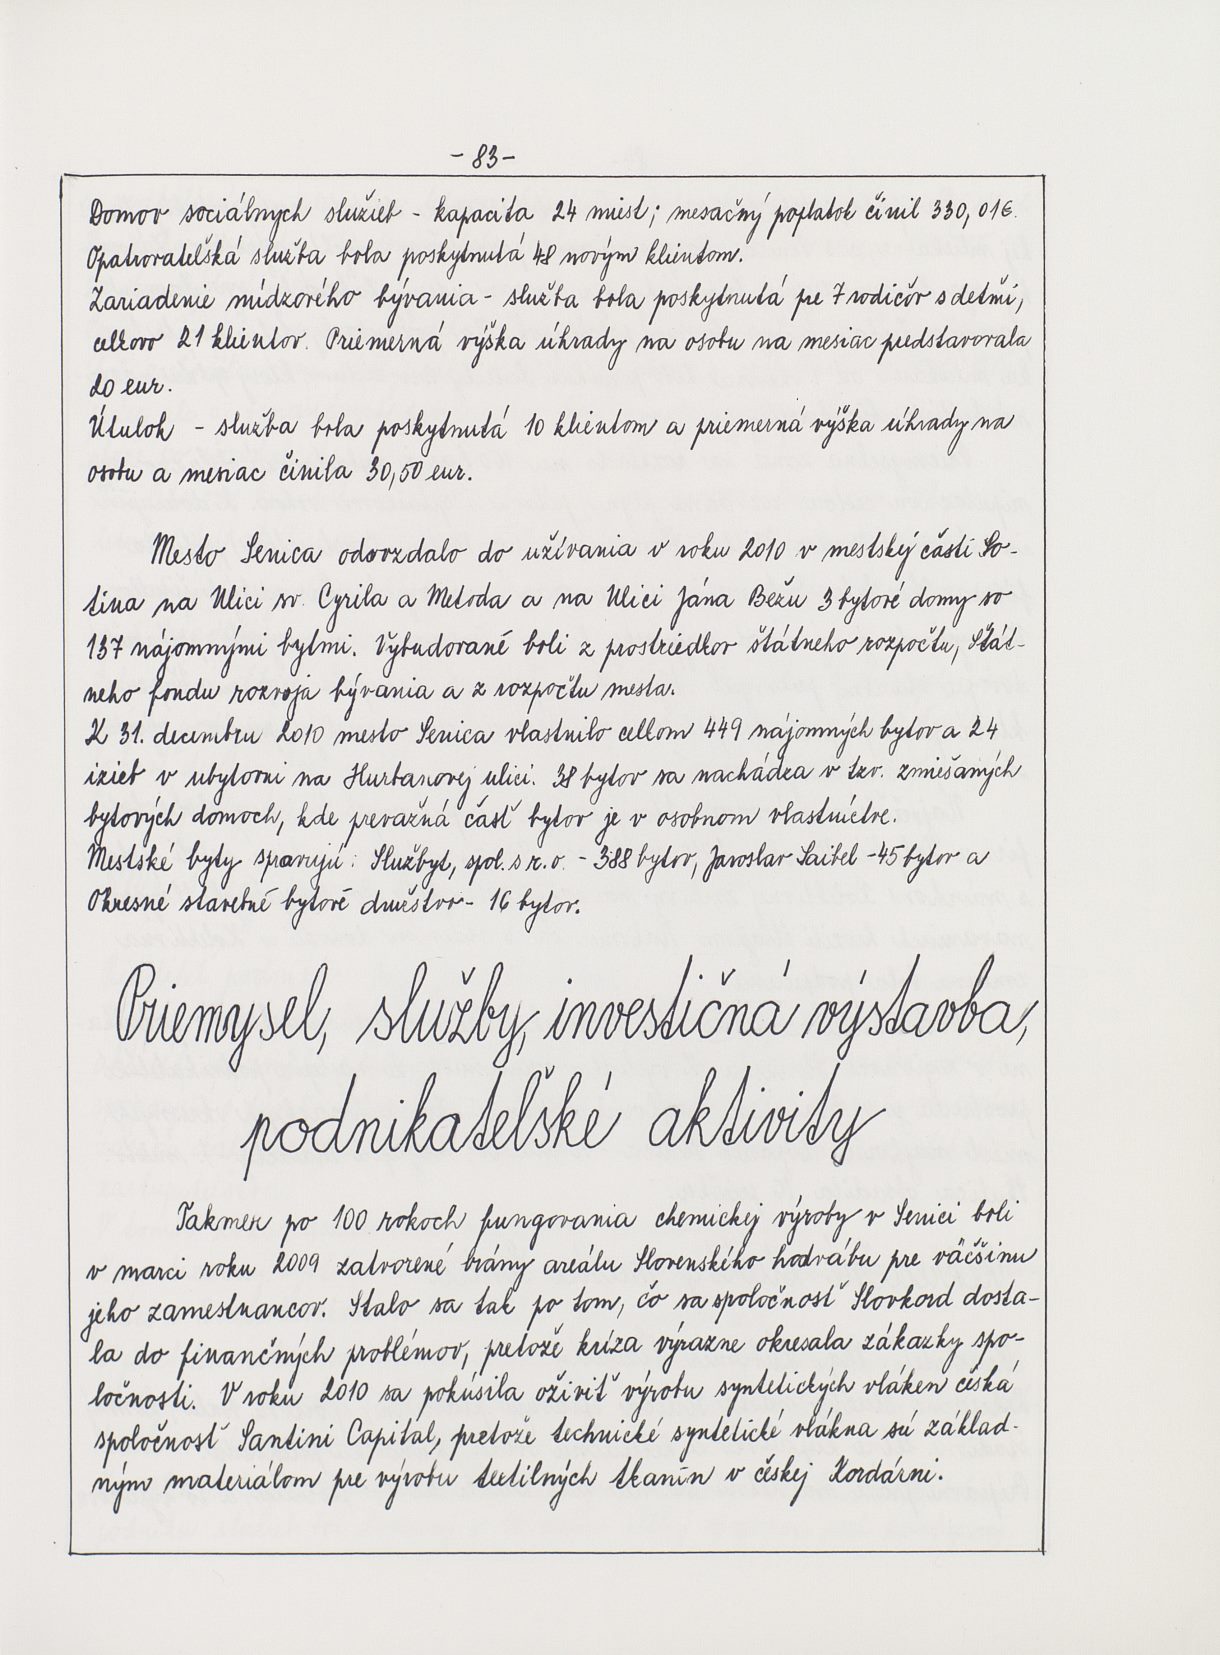 - 83 -
Domov sociálnych služieb - kapacita 24 miest; mesačný poplatok činil 330,01€.
Opatrovateľská služba bola poskytnutá 48 novým klientom.
Zariadenie núdzového bývania - služba bola poskytnutá pre 7 rodičov s deťmi,
celkovo 21 klientov. Priemerná výška úhrady na osobu na mesiac predstavovala
20 eur.
Útulok - služba bola poskytnutá 10 klientom a priemerná výška úhrady na
osobu a mesiac činila 30,50 eur.
Mesto Senica odovzdalo do užívania v roku 2010 v mestskej časti So-
tina na Ulici sv. Cyrila a Metoda a na Ulici Jána Bežu 3 bytové domy so
137 nájomnými bytmi. Vybudované boli z prostriedkov štátneho rozpočtu, Štát-
neho fondu rozvoja bývania a z rozpočtu mesta.
K 31. decembru 2010 mesto Senica vlastnilo celkom 449 nájomných bytov a 24
izieb v ubytovni na Hurbanovej ulici. 38 bytov sa nachádza v tzv. zmiešaných
bytových domoch, kde prevažná časť bytov je v osobnom vlastníctve.
Mestské byty spravujú: Službyt, spol. s r. o. - 388 bytov, Jaroslav Saibel - 45 bytov a
Okresné stavebné bytové družstvo - 16 bytov.
Priemysel, služby, investičná výstavba,
podnikateľské aktivity
Takmer po 100 rokoch fungovania chemickej výroby v Senici boli
v marci roku 2009 zatvorené brány areálu Slovenského hodvábu pre väčšinu
jeho zamestnancov. Stalo sa tak po tom, čo sa spoločnosť Slovkord dosta-
la do finančných problémov, pretože kríza výrazne okresala zákazky spo-
ločnosti. V roku 2010 sa pokúsila oživiť výrobu syntetických vláken česká
spoločnosť Santini Capital, pretože technické syntetické vlákna sú základ-
ným materiálom pre výrobu textilných tkanín v českej Kordárni.